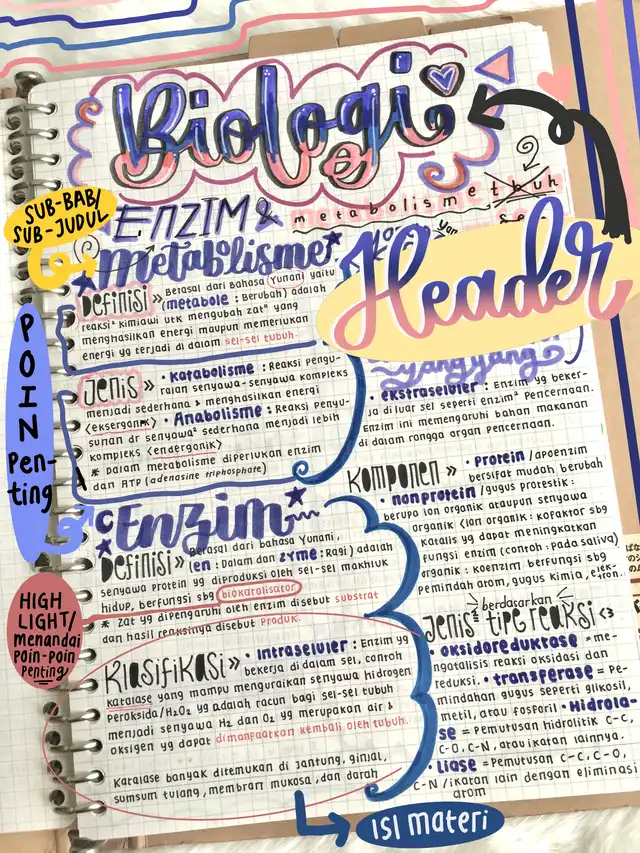 Biologi
SUB-BAB/
SUB-JUDUL
ENZIM &
Metabolisme
metabolisme tbuh
Header
POIN
Pen-
ting
Definisi » Berasal dari Bahasa Yunani yaitu
(metabole : Berubah) adalah
reaksi² kimiawi utk mengubah zat² yang
menghasilkan energi maupun memerlukan
energi yg terjadi di dalam sel-sel tubuh.
Jenis » • Katabolisme : Reaksi pengu-
raian senyawa-senyawa kompleks
menjadi sederhana & menghasilkan energi
<eksergonik>
• Anabolisme : Reaksi Penyu-
sunan dr senyawa² sederhana menjadi lebih
kompleks <endergonik>
* Dalam metabolisme diperlukan enzim
dan ATP (adenosine triphosphate)
Enzim
Definisi » Berasal dari bahasa Yunani,
(en : Dalam dan zyme : Ragi) adalah
senyawa protein yg diproduksi oleh sel-sel makhluk
hidup, berfungsi sbg biokatalisator
* Zat yg dipengaruhi oleh enzim disebut substrat
dan hasil reaksinya disebut Produk.
HIGH
LIGHT/
menandai
Poin-Poin
Penting
Klasifikasi » • Intraseluler : Enzim yg
bekerja di dalam sel, contoh
Katalase yang mampu menguraikan senyawa hidrogen
Peroksida/H₂O₂ yg adalah racun bagi sel-sel tubuh
menjadi senyawa H₂ dan O₂ yg merupakan air &
oksigen yg dapat dimanfaatkan kembali oleh tubuh.
Katalase banyak ditemukan di jantung, ginjal,
sumsum tulang, membran mukosa, dan darah
yang yang
• ekstraseluler : Enzim yg beker-
ja di luar sel seperti enzim² Pencernaan.
Enzim ini memengaruhi bahan makanan
di dalam rongga organ pencernaan.
Komponen » • Protein /apoenzim
bersifat mudah berubah
• nonprotein /gugus protestik :
berupa ion organik ataupun senyawa
organik (ion organik : kofaktor sbg
katalis yg dapat meningkatkan
fungsi enzim (contoh : pada saliva)
organik : koenzim berfungsi sbg
pemindah atom, gugus kimia, elek-
tron.
berdasarkan
Jenis² tipe reaksi <3
• oksidoreduktase = me-
ngatalisis reaksi oksidasi dan
reduksi. • transferase = Pe-
mindahan gugus seperti glikosil,
metil, atau fosforil • Hidrola-
se = Pemutusan hidrolitik C-C,
C-O, C-N, atau ikatan lainnya.
• Liase = Pemutusan C-C, C-O,
C-N /ikatan lain dengan eliminasi
atom
ISI materi